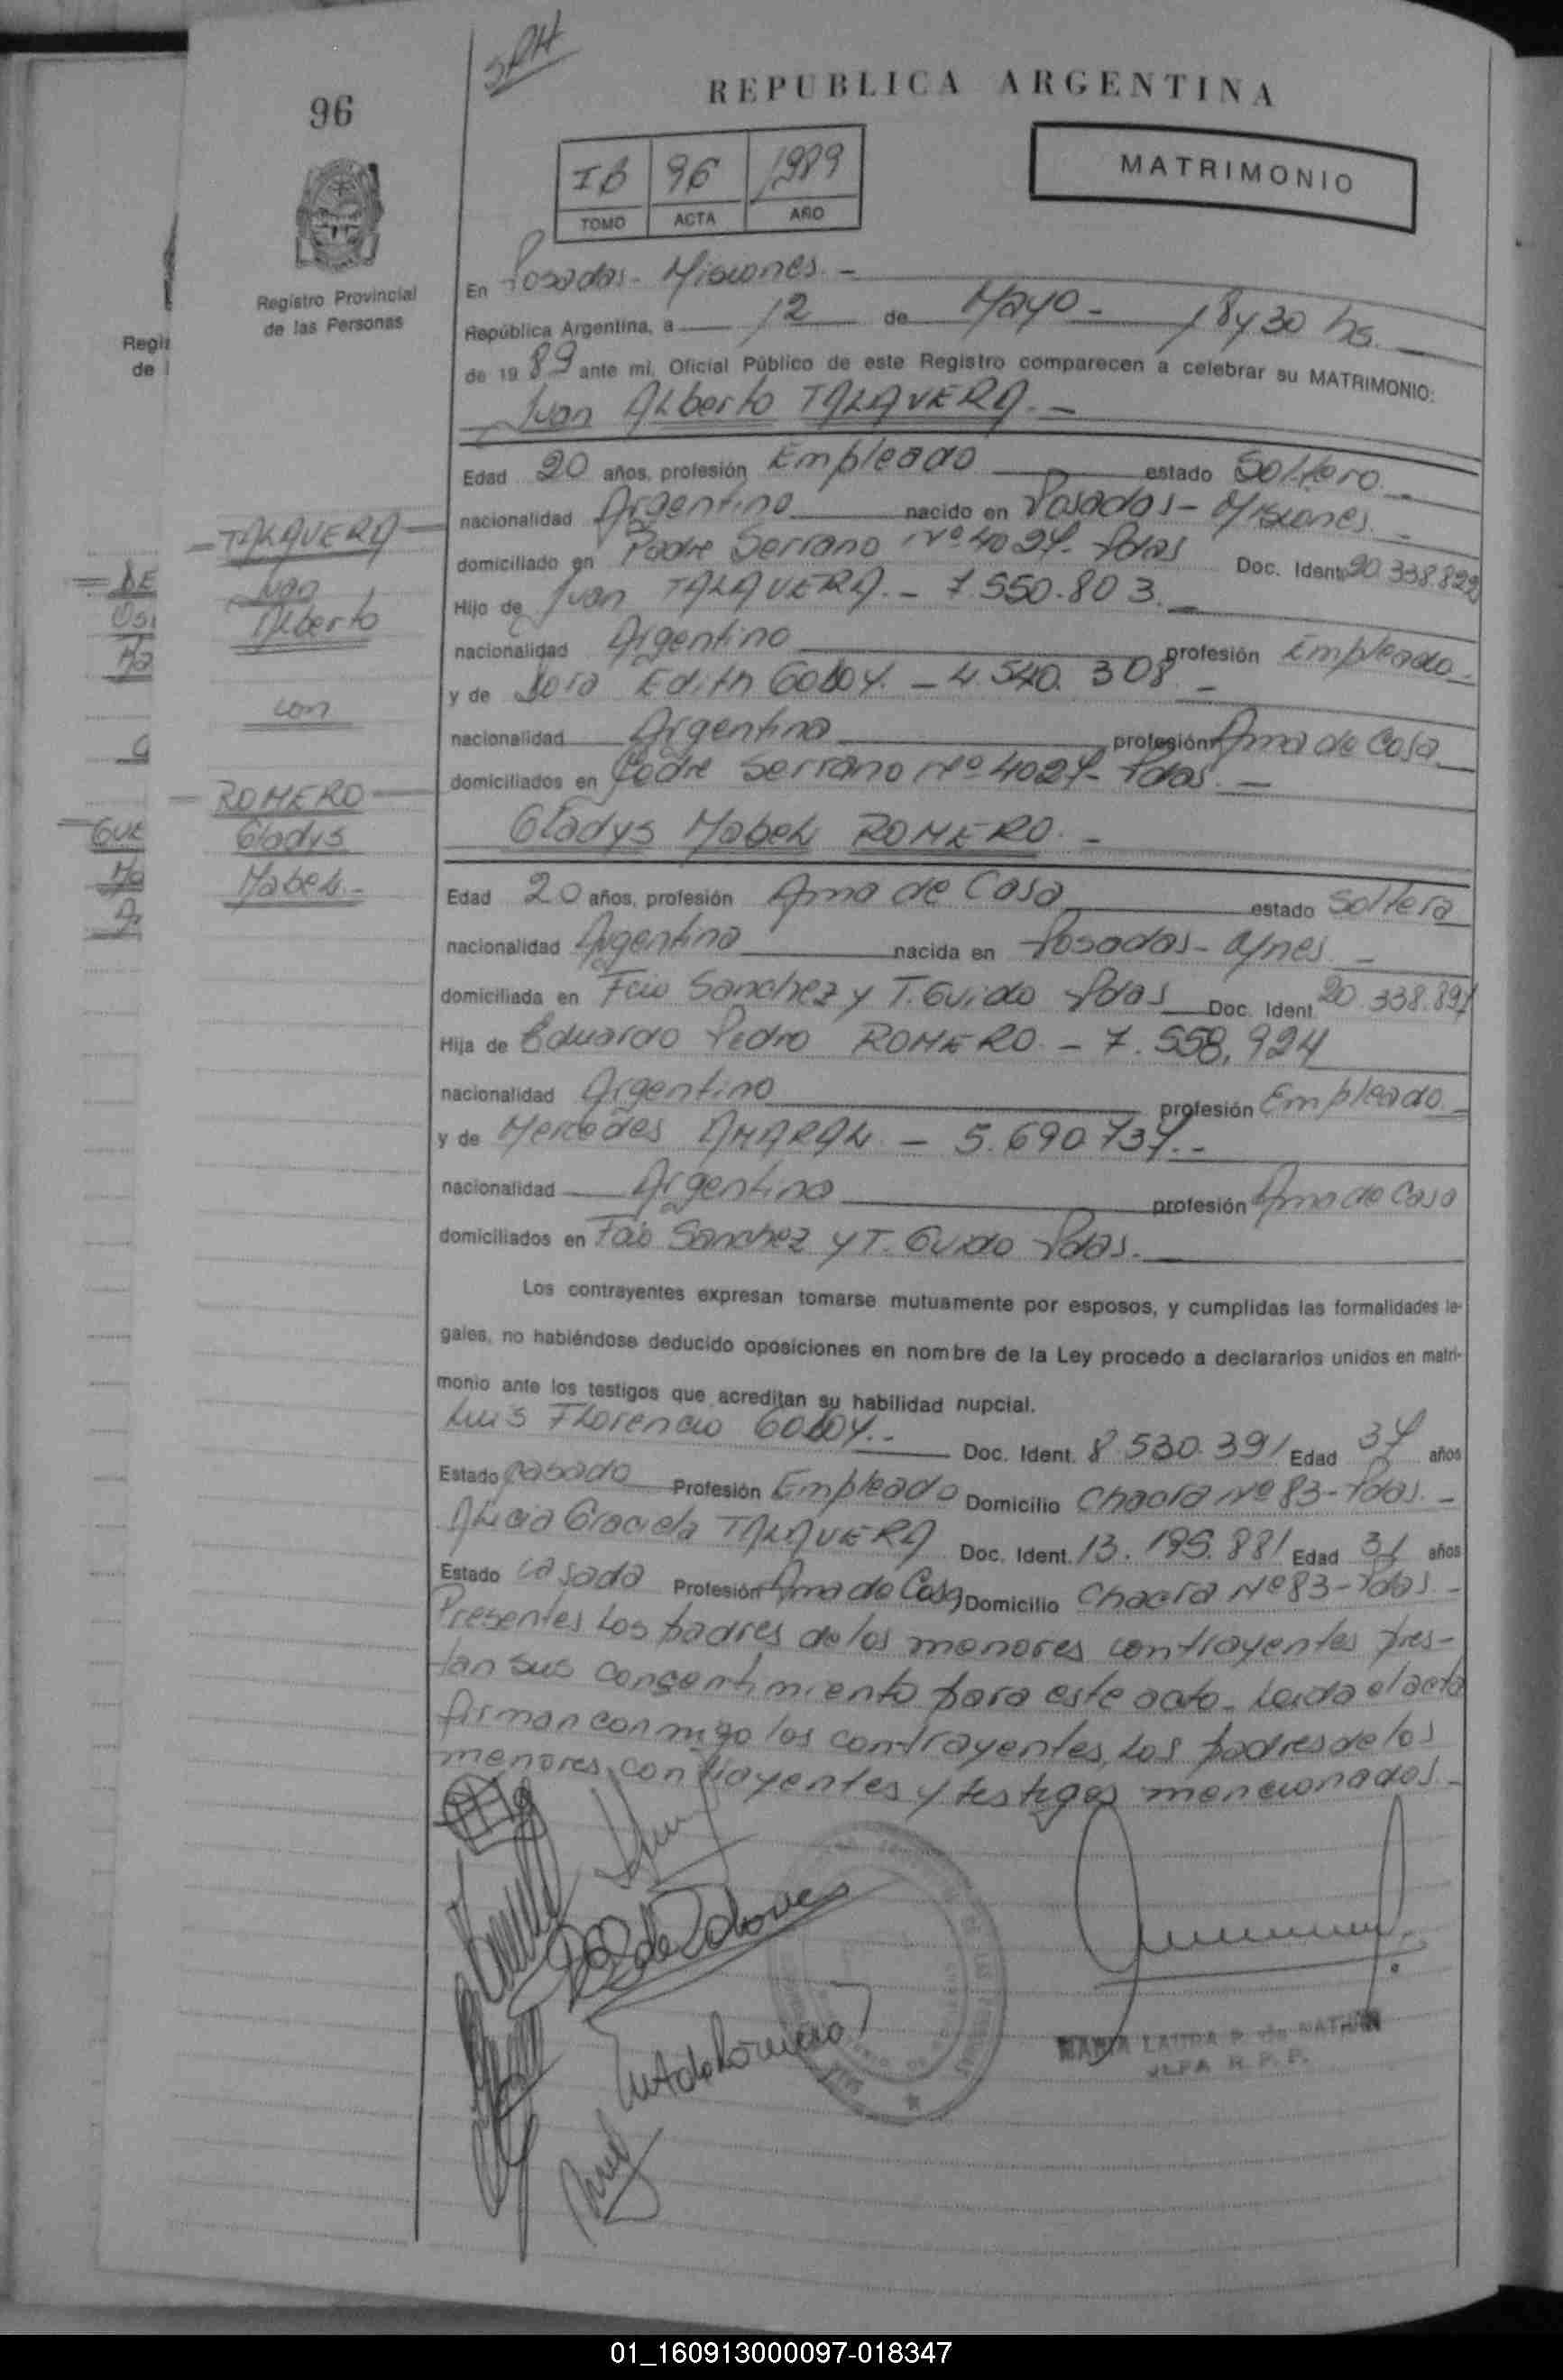 SRH
96
REPUBLICA ARGENTINA
IB 96 1989
TOMO ACTA AÑO
MATRIMONIO
Registro Provincial
de las Personas
En Posadas - Misiones. -
República Argentina, a 12 de Mayo - 18y30 hs.
de 1989 ante mí, Oficial Público de este Registro comparecen a celebrar su MATRIMONIO:
Juan Alberto TALAVERA. -
Edad 20 años, profesión Empleado estado Soltero. -
nacionalidad Argentino nacido en Posadas - Misiones. -
domiciliado en Padre Serrano Nº 4027 - Pdas Doc. Ident. 20.338.822
Hijo de Juan TALAVERA. - 7.550.803. -
nacionalidad Argentino profesión Empleado. -
y de Edith GODOY. - 4.540.308 -
nacionalidad Argentina profesión Ama de Casa
domiciliados en Padre Serrano Nº 4027 - Pdas. -
Gladys Mabel ROMERO. -
Edad 20 años, profesión Ama de Casa estado Soltera
nacionalidad Argentina nacida en Posadas - Mnes. -
domiciliada en Fcio Sanchez y T. Guido Pdas Doc. Ident. 20.338.897
Hija de Eduardo Pedro ROMERO - 7.558.924
nacionalidad Argentino profesión Empleado -
y de Mercedes AMARAL - 5.690.737. -
nacionalidad Argentina profesión Ama de Casa
domiciliados en Fcio Sanchez y T. Guido Pdas. -
Los contrayentes expresan tomarse mutuamente por esposos, y cumplidas las formalidades le-
gales, no habiéndose deducido oposiciones en nombre de la Ley procedo a declararlos unidos en matri-
monio ante los testigos que acreditan su habilidad nupcial.
Luis Florencio GODOY. - Doc. Ident. 8.530.391 Edad 37 años
Estado Casado Profesión Empleado Domicilio Chacra Nº 83 - Pdas. -
Alicia Graciela TALAVERA Doc. Ident. 13.195.881 Edad 31 años
Estado casada Profesión Ama de Casa Domicilio Chacra Nº 83 - Pdas -
Presentes los padres de los menores contrayentes pres-
tan sus consentimiento para este acto - Leida el acta
firman conmigo los contrayentes, los padres de los
menores contrayentes y testigos mencionados. -
TALAVERA
Juan
Alberto
con
ROMERO
Gladys
Mabel. -
MARIA LAURA P. de NATHAN
JEFA R. P. P.
01_160913000097-018347